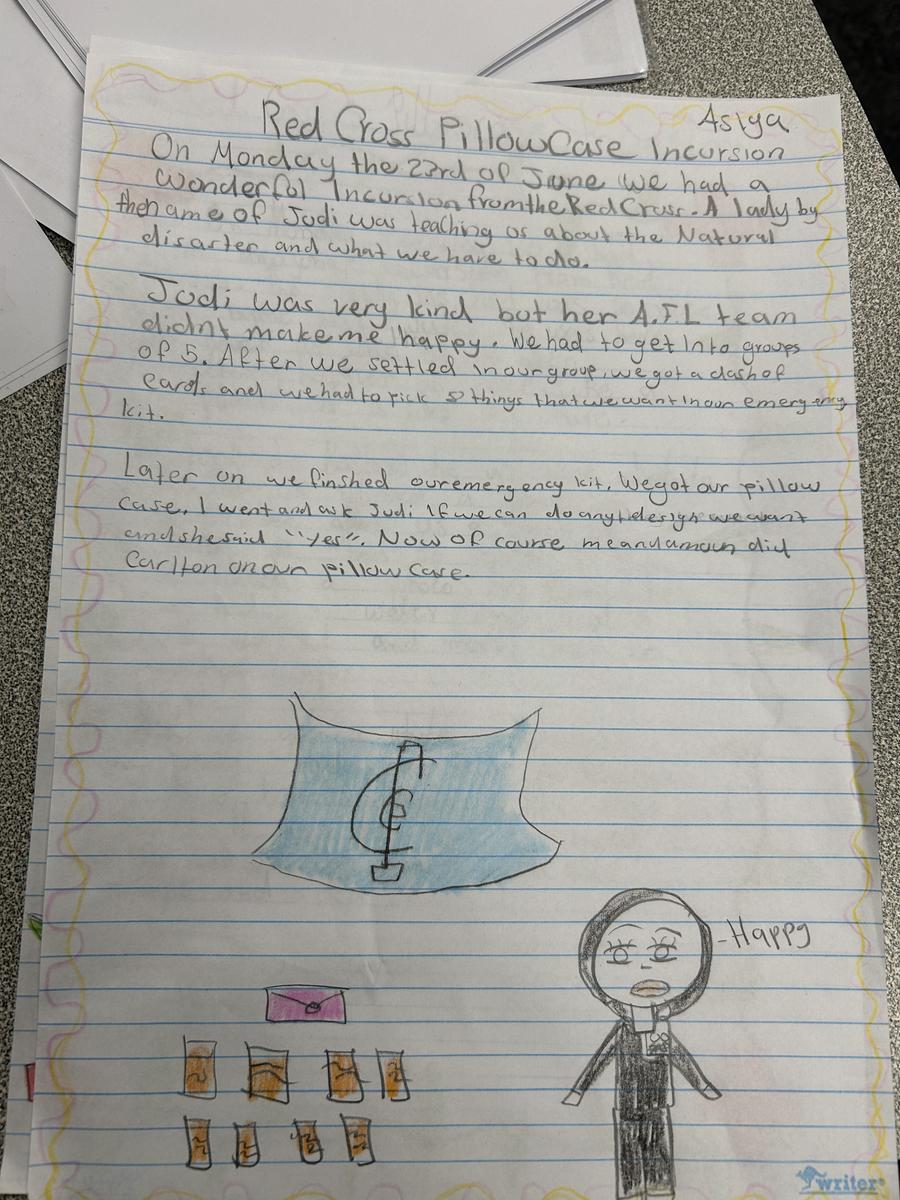 Asiya
Red Cross PillowCase Incursion
On Monday the 23rd of June we had a
wonderful Incursion from the Red Cross. A lady by
the name of Jodi was teaching us about the Natural
disaster and what we have to do.
Jodi was very kind but her A.F.L team
didn't make me happy. We had to get Into groups
of 5. After we settled in our group, we got a dash of
cards and we had to pick things that we want In our emergency
kit.
Later on we finshed our emergency kit. We got our pillow
case. I went and ask Jodi If we can do any design we want
and she said "yes". Now of course me and did
Carlton on our pillow case.
-Happy
writer